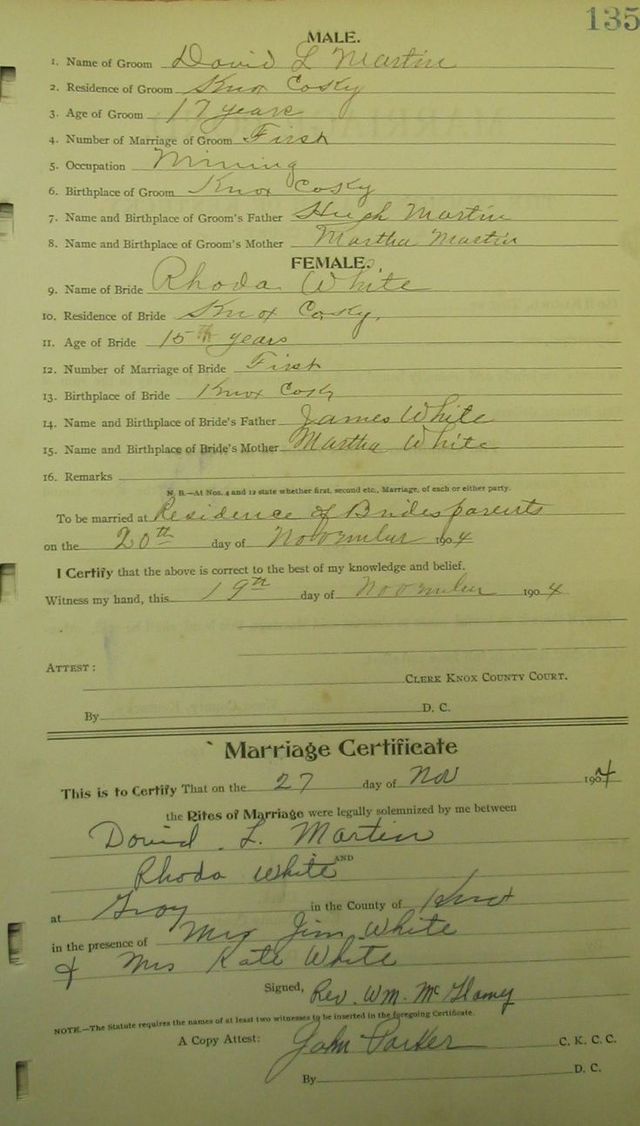 135
MALE.
1. Name of Groom David L Martin
2. Residence of Groom Knox Co Ky
3. Age of Groom 17 years
4. Number of Marriage of Groom First
5. Occupation Mining
6. Birthplace of Groom Knox Co Ky
7. Name and Birthplace of Groom's Father Hugh Martin
8. Name and Birthplace of Groom's Mother Martha Martin
FEMALE.
9. Name of Bride Rhoda White
10. Residence of Bride Knox Co Ky.
11. Age of Bride 15th years
12. Number of Marriage of Bride First
13. Birthplace of Bride Knox Co Ky
14. Name and Birthplace of Bride's Father James White
15. Name and Birthplace of Bride's Mother Martha White
16. Remarks
N. B.—At Nos. 4 and 12 state whether first, second etc., Marriage, of each or either party.
To be married at Residence of Brides parents
on the 20th day of November 1904
I Certify that the above is correct to the best of my knowledge and belief.
Witness my hand, this 19th day of November 1904
ATTEST:
CLERK KNOX COUNTY COURT.
By D. C.
Marriage Certificate
This is to Certify That on the 27 day of Nov 1904
the Rites of Marriage were legally solemnized by me between
David L. Martin
AND
Rhoda White
at Gray in the County of Knox
in the presence of Mrs Jim White
& Mrs Kate White
Signed, Rev. Wm.
NOTE.—The Statute requires the names of at least two witnesses to be inserted in the foregoing Certificate.
A Copy Attest: John Parker C. K. C. C.
By D. C.